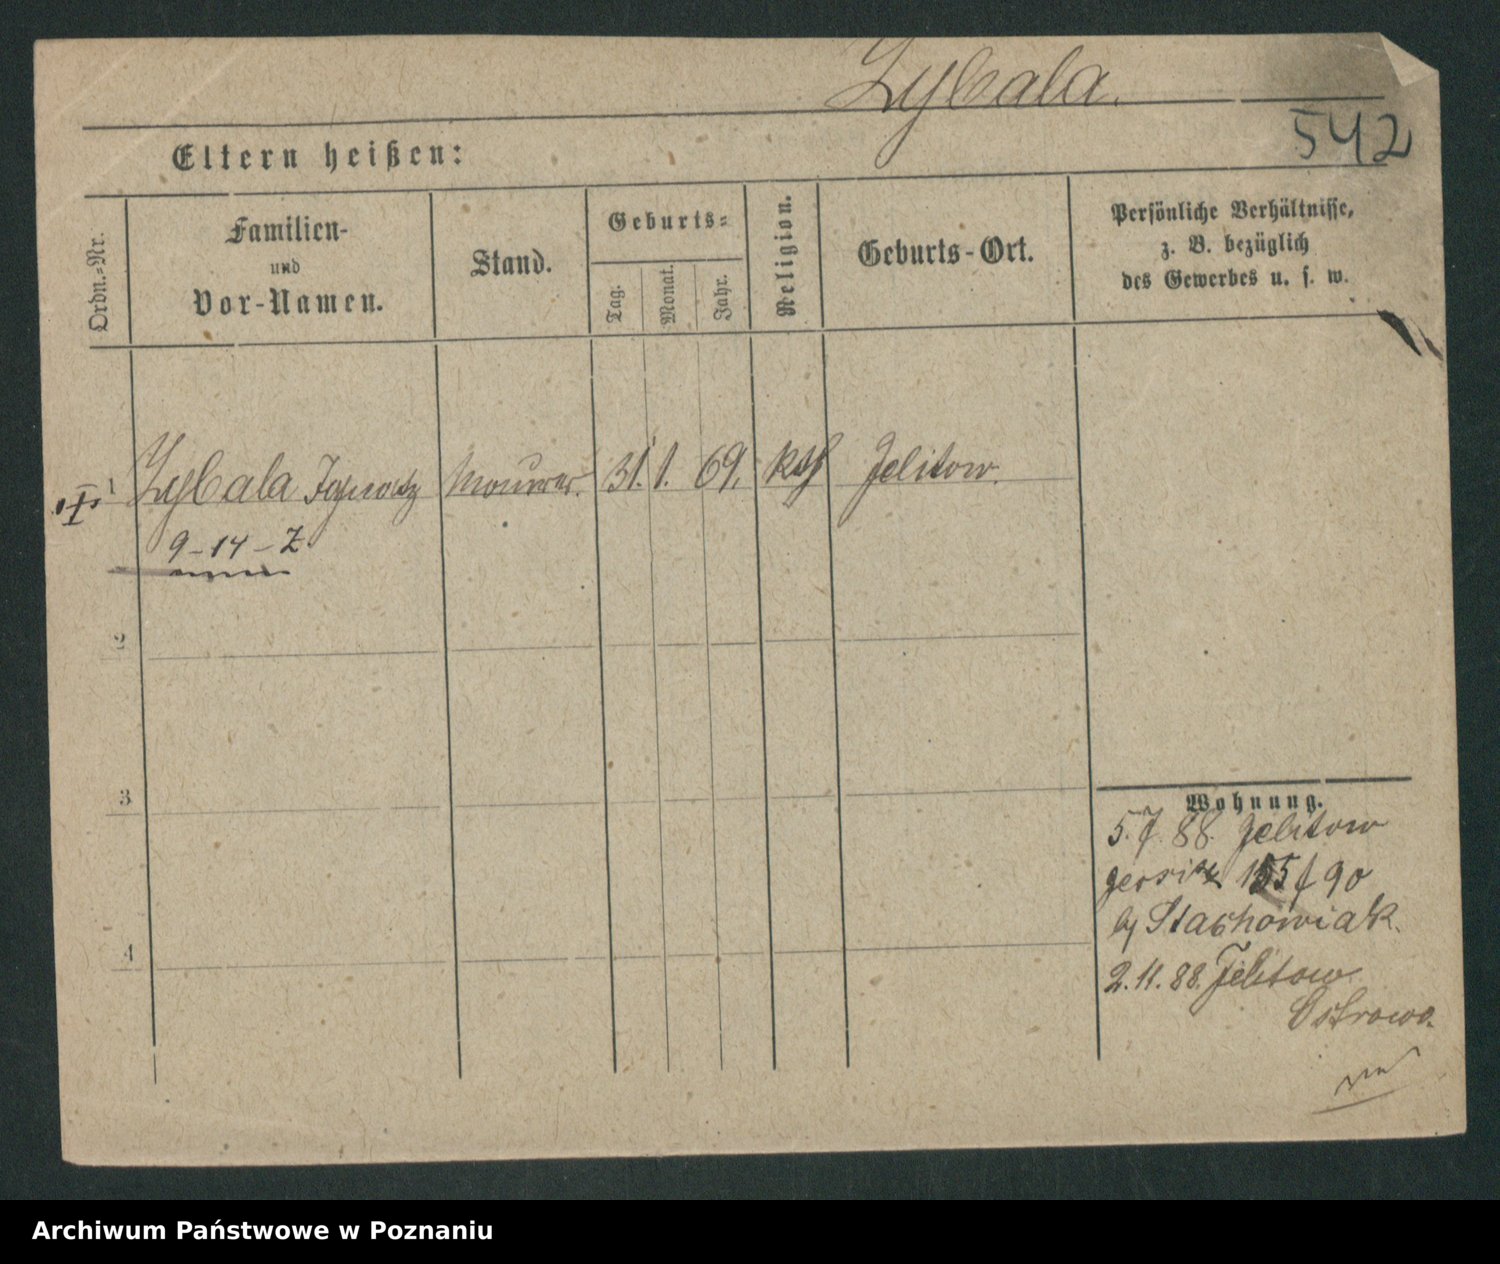 Zybala.
542
Eltern heißen:
Ordn.-Nr.
Familien-
und
Vor-Namen.
Stand.
Geburts-
Tag.
Monat.
Jahr.
Religion.
Geburts-Ort.
Persönliche Verhältnisse,
z. B. bezüglich
des Gewerbes u. s. w.
1 Zybala Ignatz Maurer. 31. 1. 69. kth Jelitow.
9-14-Z
2
3
4
Wohnung.
5. 7. 88. Jelitow
Jersitz 155 90
Stachowiak.
2. 11. 88. Jelitow
Ostrowo.
Archiwum Państwowe w Poznaniu